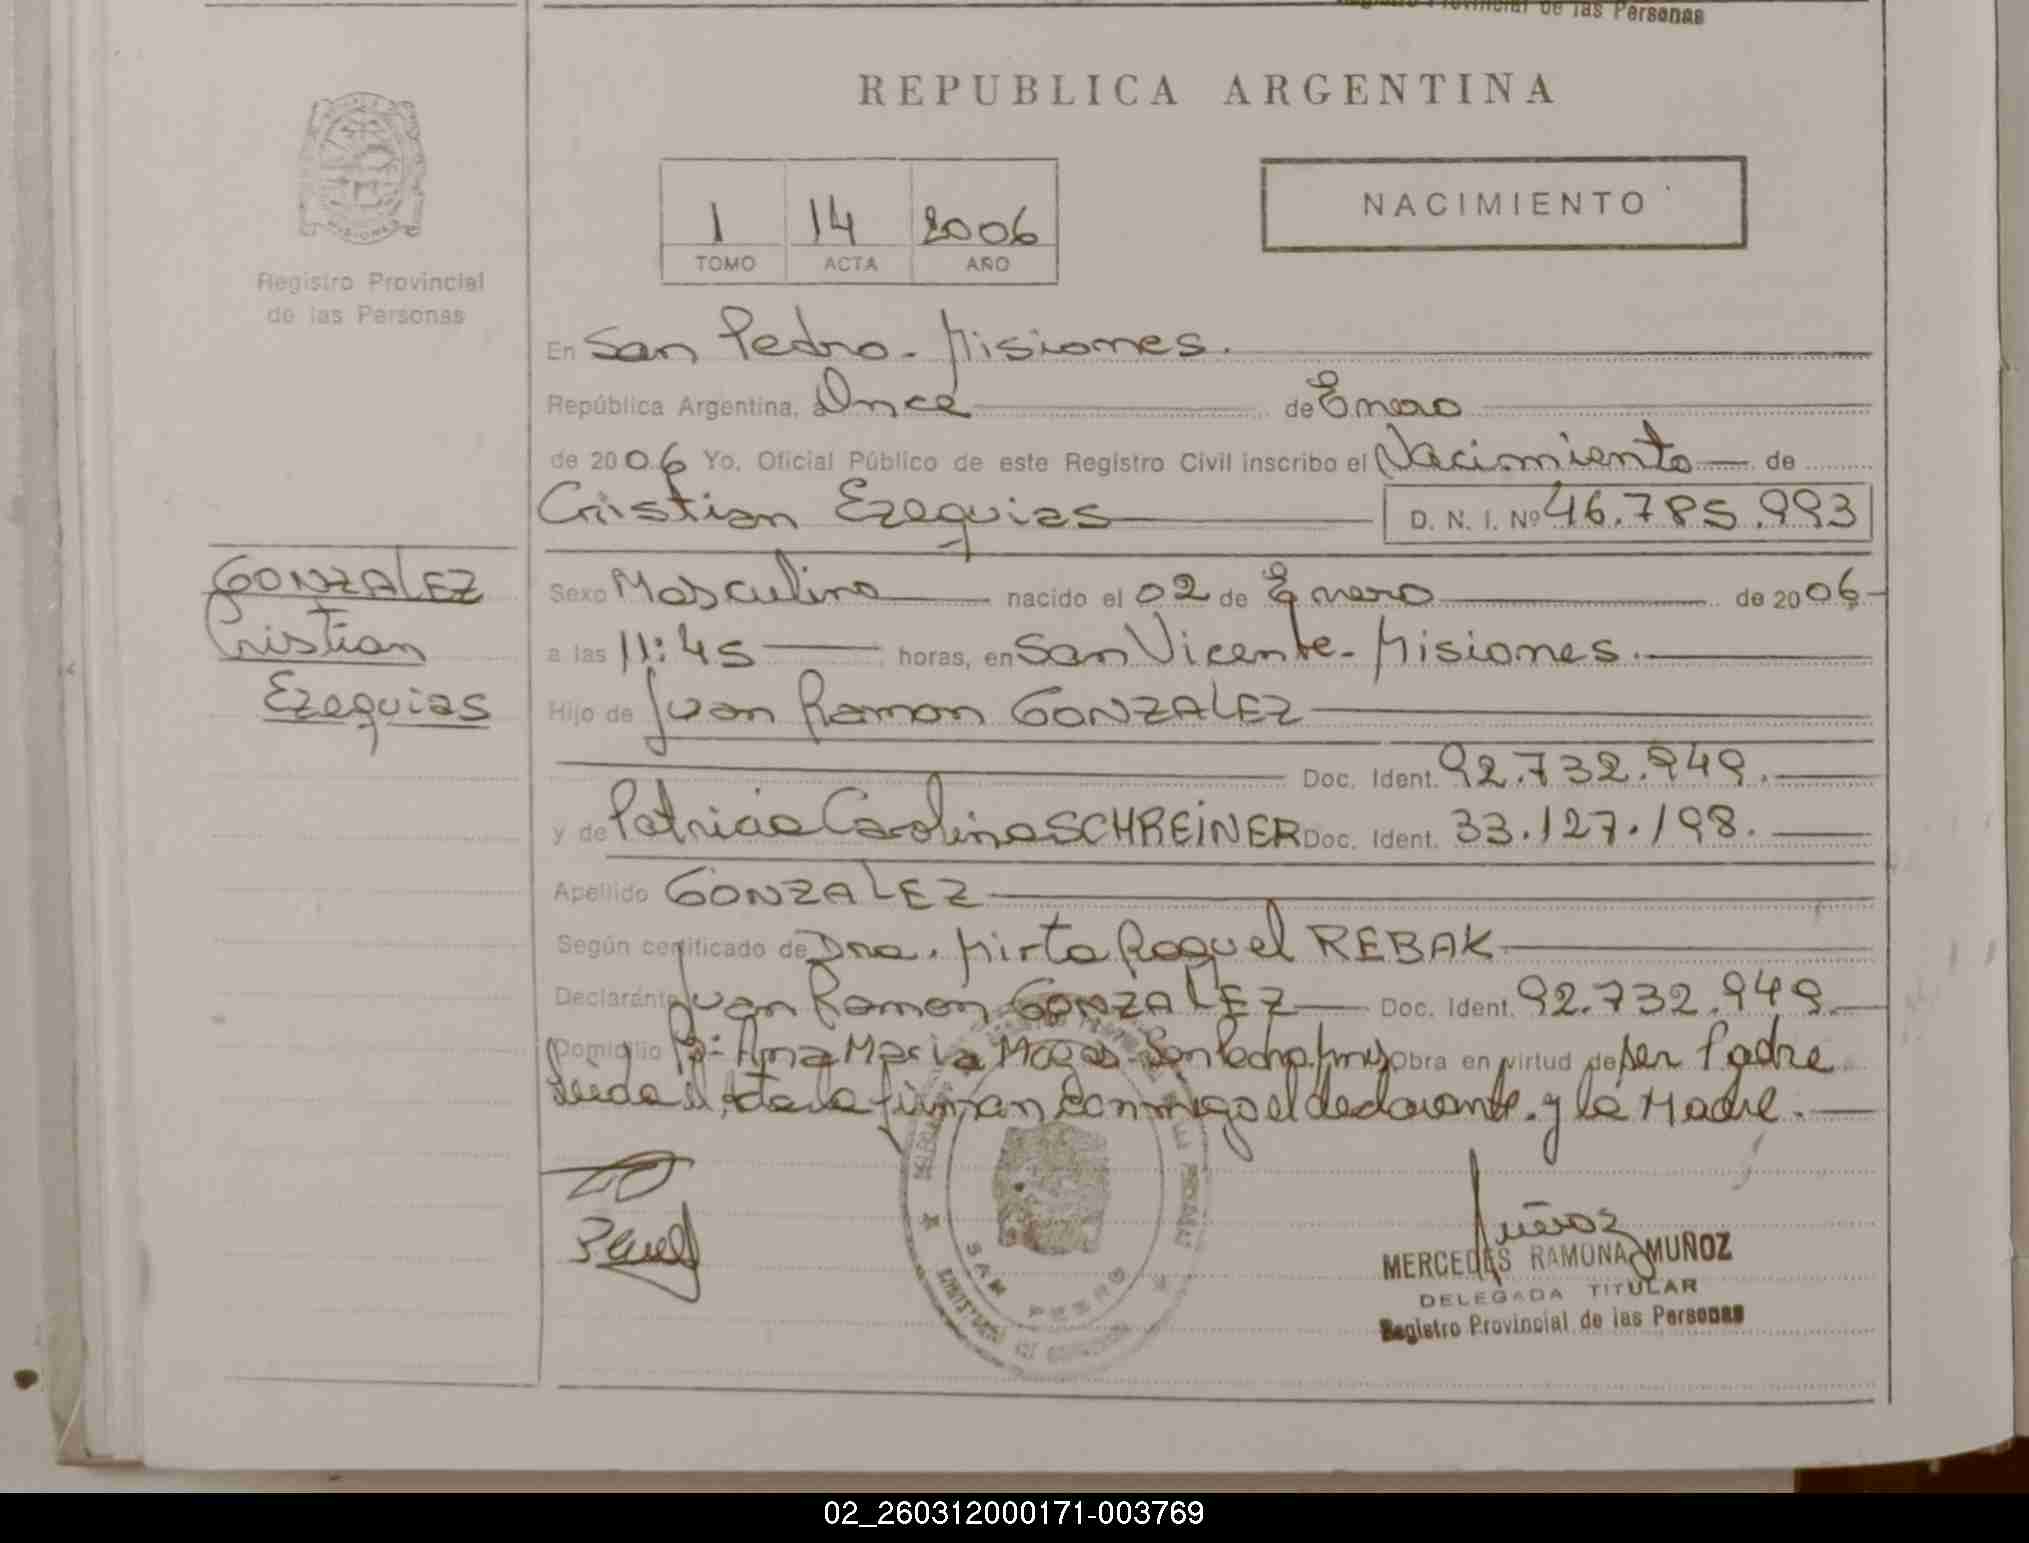 Registro Provincial de las Personas
REPUBLICA ARGENTINA
NACIMIENTO
1 14 2006
TOMO ACTA AÑO
Registro Provincial
de las Personas
En San Pedro - Misiones.
República Argentina, a Once de Enero
de 2006 Yo, Oficial Público de este Registro Civil inscribo el Nacimiento de
Cristian Ezequias D. N. I. Nº 46.785.993
GONZALEZ
Cristian
Ezequias
Sexo Masculino nacido el 02 de Enero de 2006
a las 11:45 horas, en San Vicente - Misiones.
Hijo de Juan Ramon GONZALEZ
Doc. Ident. 92.732.949.
y de Patricia Carolina SCHREINER Doc. Ident. 33.127.198.
Apellido GONZALEZ
Según certificado de Dra. Mirta Raquel REBAK
Declarante Juan Ramon GONZALEZ Doc. Ident. 92.732.949.
Domicilio Bº: Ana Maria San Pedro Mnes Obra en virtud de ser Padre
Leida el Acta la firman conmigo el declarante y la Madre.
SAN PEDRO
Muñoz
MERCEDES RAMONA MUÑOZ
DELEGADA TITULAR
Registro Provincial de las Personas
02_260312000171-003769